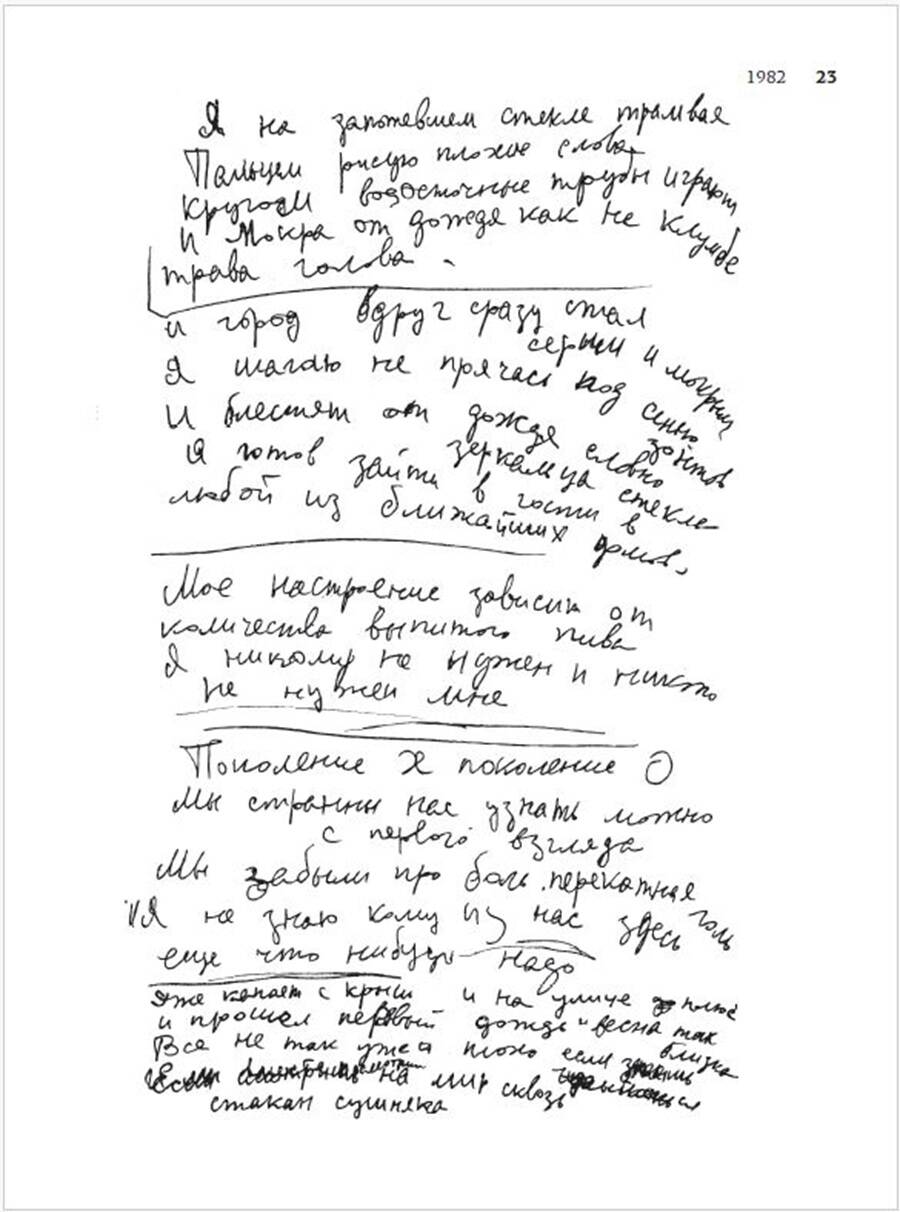 1982 23
Я на запотевшем стекле трамвая
Пальцем рисую плохие слова
кругом водосточные трубы играют
И мокра от дождя как не клумбе
трава голова.
и город вдруг сразу стал
серым и мокрым
Я шагаю не прячась под сенью
зонтов
И блестят от дождя словно
зеркальца стекле
Я готов зайти в гости в
любой из ближайших домов.
Мое настроение зависит от
количества выпитого пива
Я никому не нужен и никто
не нужен мне
Поколение X поколение O
Мы странны нас узнать можно
с первого взгляда
Мы забыли про боль перекатная
голь
Я не знаю кому из нас здесь
еще что нибудь надо
Уже капает с крыш и на улице плюс
и прошел первый дождь и весна так
близка
Все не так уже и плохо если
на мир сквозь
стакан сушняка